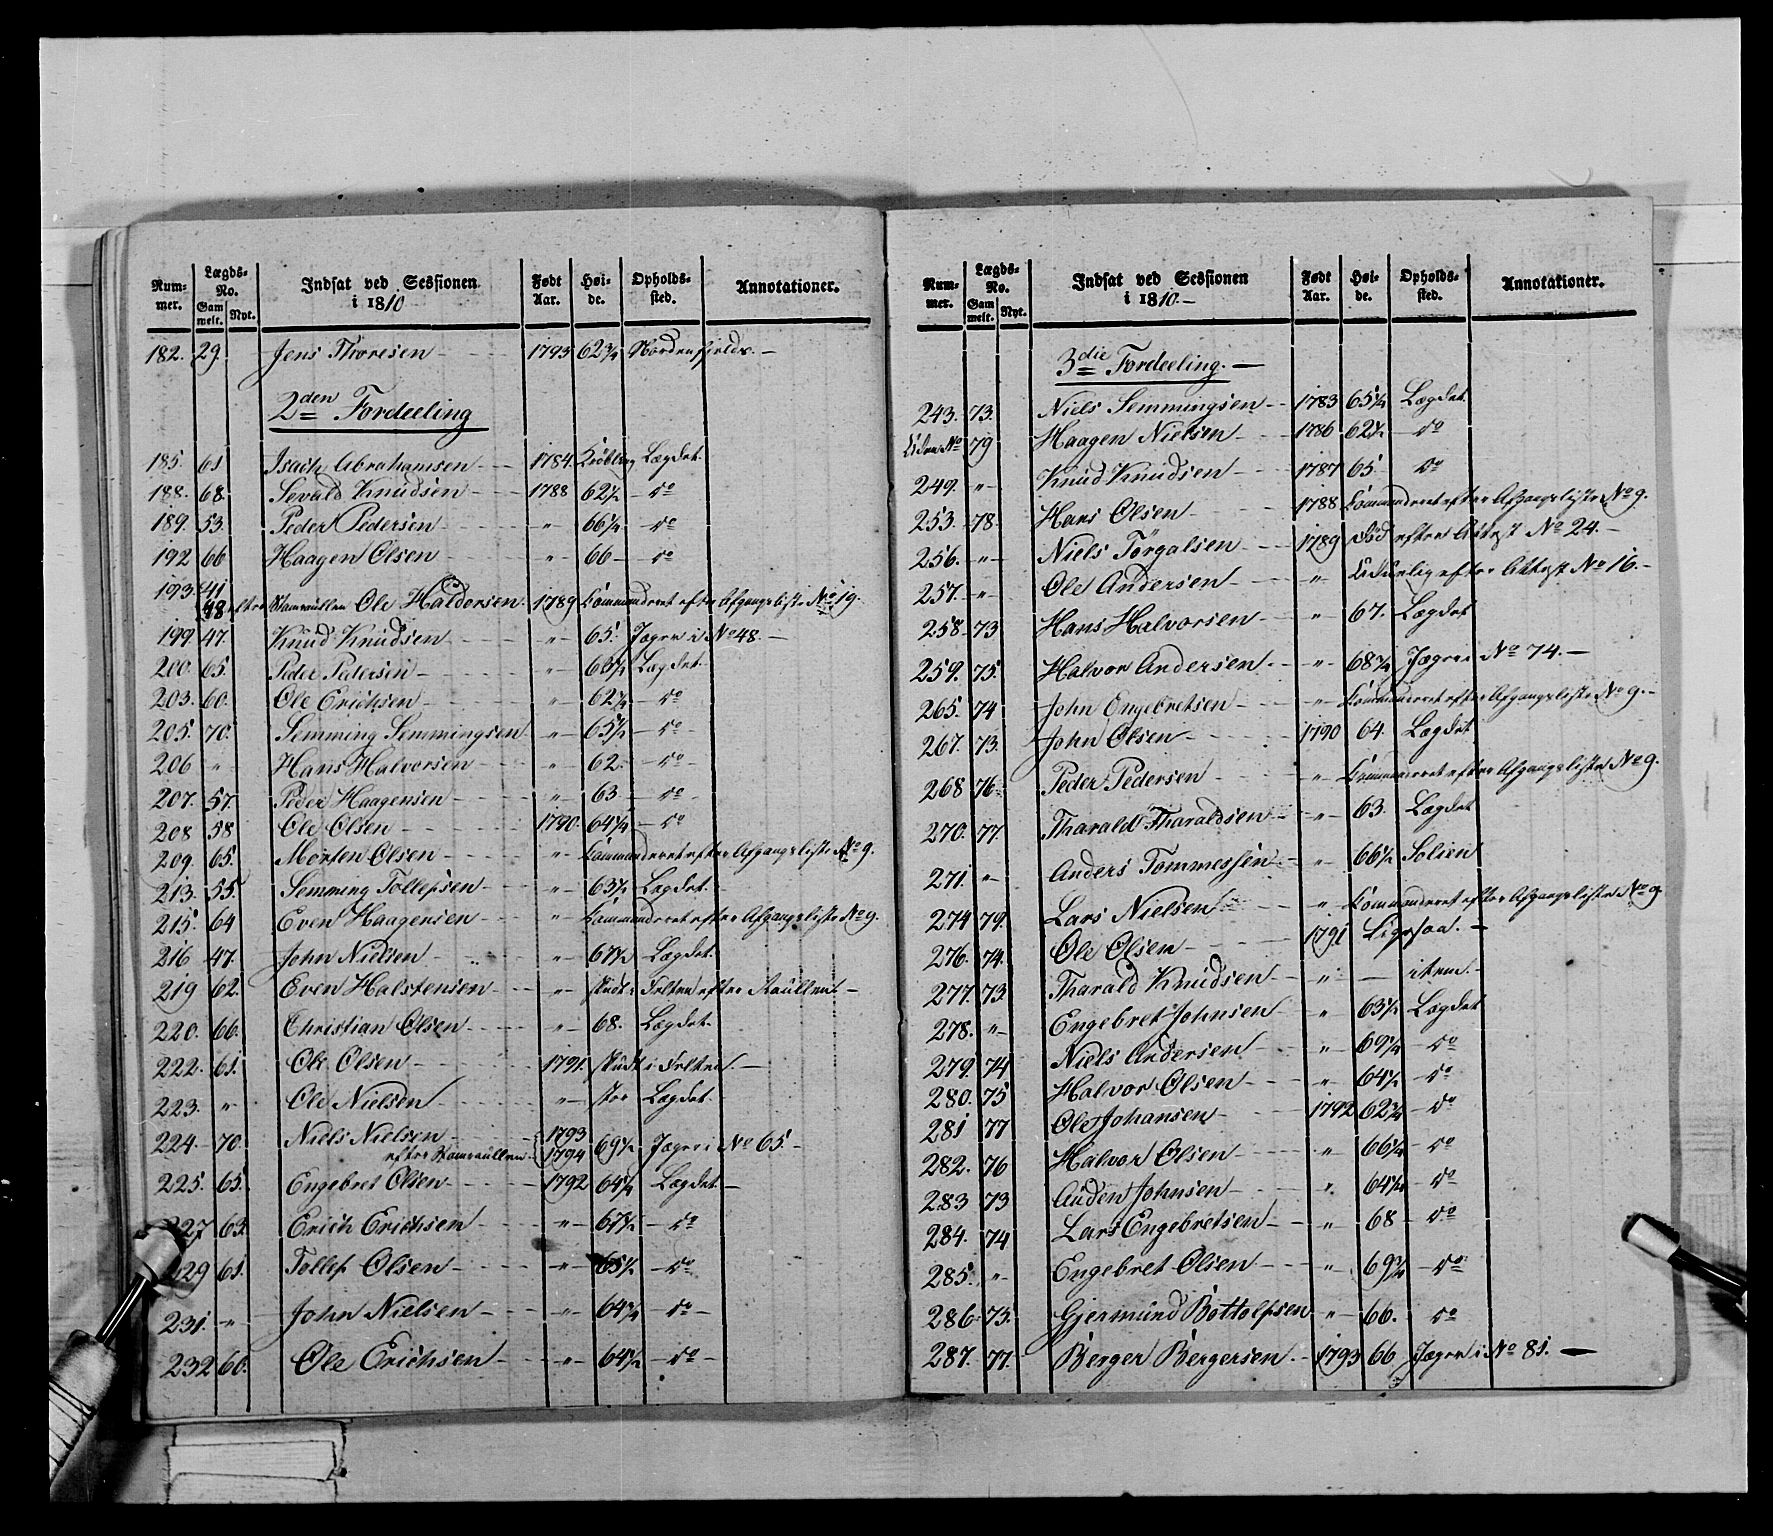 Num-
mer.
Lægds-
No.
Gam
melt. Nyt.
Indsat ved Sessionen
i 1810
Født
Aar.
Høi-
de.
Opholds-
sted.
Annotationer.
182. 29 Jens Thoresen 1793 62¾ Nordenfjelds.
2den Fordeeling
185. 61 Isach Abrahamsen 1784. Krøbling Lægdet
188. 68. Sevald Knudsen 1788 62½ do
189. 53. Peder Pedersen " 66¼ do
192 66 Haagen Olsen " 66 do
193. 41
48 efter Stamrullen Ole Haldorsen 1789 Commanderet efter Afgangsliste No 19.
199 47. Knud Knudsen " 65. Jægere i No 48.
200. 65. Peder Pedersen " Lægdet
203. 60. Ole Erichsen " do
205. 70. Semming Semmingsen " 65½ do
206 " Hans Halvorsen " 62. do
207. 57. Peder Haagensen " 63 do
208 58 Ole Olsen 1790. 64¼ do
209. 65. Morten Olsen " Commanderet efter Afgangsliste No 9.
213. 55. Semming Tollefsen " 63½ Lægdet
215. 64 Even Haagensen " Commanderet efter Afgangsliste No 9.
216 47. John Nielsen " 67½ Lægdet
219 62. Even Halstensen " skudt i Felten efter Rullen
220. 66. Christian Olsen " 68. Lægdet
222. 61. Ole Olsen 1791. skudt i Felten.
223. " Ole Nielsen " stor Lægdet
224. 70. Niels Nielsen 1793
efter Stamrullen 1794 69½ Jægere i No 65
225. 65. Engebret Olsen 1792 64¼ Lægdet
227 63. Erich Erichsen " 67½ do
229 61. Tollef Olsen " 65½ do
231. " John Nielsen " 64¾ do
232 60. Ole Erichsen " 64½ do
Num-
mer.
Lægds-
No.
Gam
melt. Nyt.
Indsat ved Sessionen
i 1810
Født
Aar.
Høi-
de.
Opholds-
sted.
Annotationer.
3die Fordeeling.
243. 73. Niels Semmingsen 1783 65¼ Lægdet
Uden No 79 Haagen Nielsen 1786 62½ do
249. " Knud Knudsen 1787 65. do
253. 78. Hans Olsen 1788 Commanderet efter Afgangsliste No 9.
256. " Niels Törgalsen 1789 Død efter Attest No 24.
257. " Ole Andersen " Udurlig efter Attest No 16.
258. 73 Hans Halvorsen " 67. Lægdet
259. 75. Halvor Andersen " 68¾ Jægere i No 74.
265. 74 John Engebretsen " Commanderet efter Afgangsliste No 9.
267. 73. John Olsen 1790 64. Lægdet
268 76. Peder Pedersen " Commanderet efter Afgangsliste No 9.
270. 77. Tharald Tharaldsen " 63. Lægdet
271. " Anders Tommessen " 66½ Solien
274 79. Lars Nielsen " Commanderet efter Afgangsliste No 9
276. 74. Ole Olsen 1791 Ligesaa.
277. 73. Tharald Knudsen " item.
278. " Engebret Johnsen " 63½ Lægdet
279. 74 Niels Andersen " 69¼ do
280. 75 Halvor Olsen " 64½ do
281 77 Ole Johansen 1792 62¾ do
282. 76 Halvor Olsen " 66¼ do
283 73 Auden Johnsen " do
284. 74 Lars Engebretsen " 68 do
285. " Engebret Olsen " 69¾ do
286. 73. Gjermund Bottolfsen " 66. do
287. 77. Berger Bergersen 1793 66 Jægere i No 81.